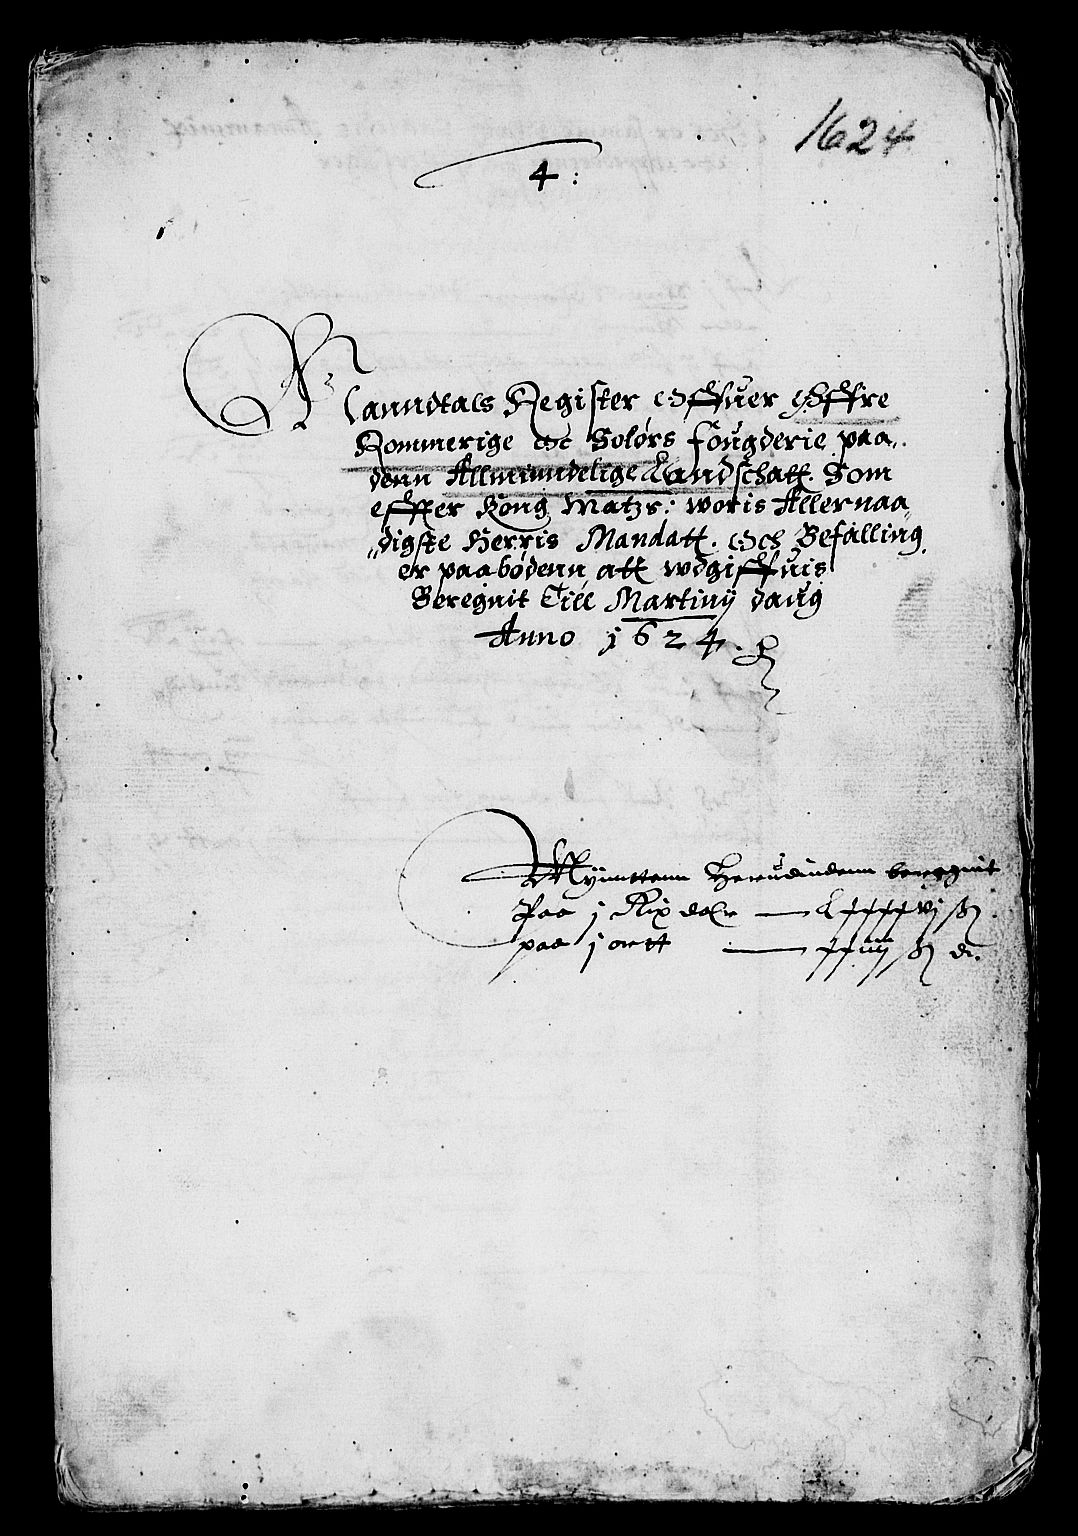 1624
4:
Manndtals Register Offuer Øffre
Rommerige och Solørs fougderie paa
denn Allmiindelige Landschatt. Som
effter Kong Matzs: woris Allernaa„
„digste Herris Mandatt. och Befalling
er paabødenn att wdgiffuis
Beregnit Till Martinij daug
Anno 1624.
Mynnttenn Herudindenn beregnit
Paa j Rix dalr — Lxxxxvj ß
paa j ortt — xxiiij ß